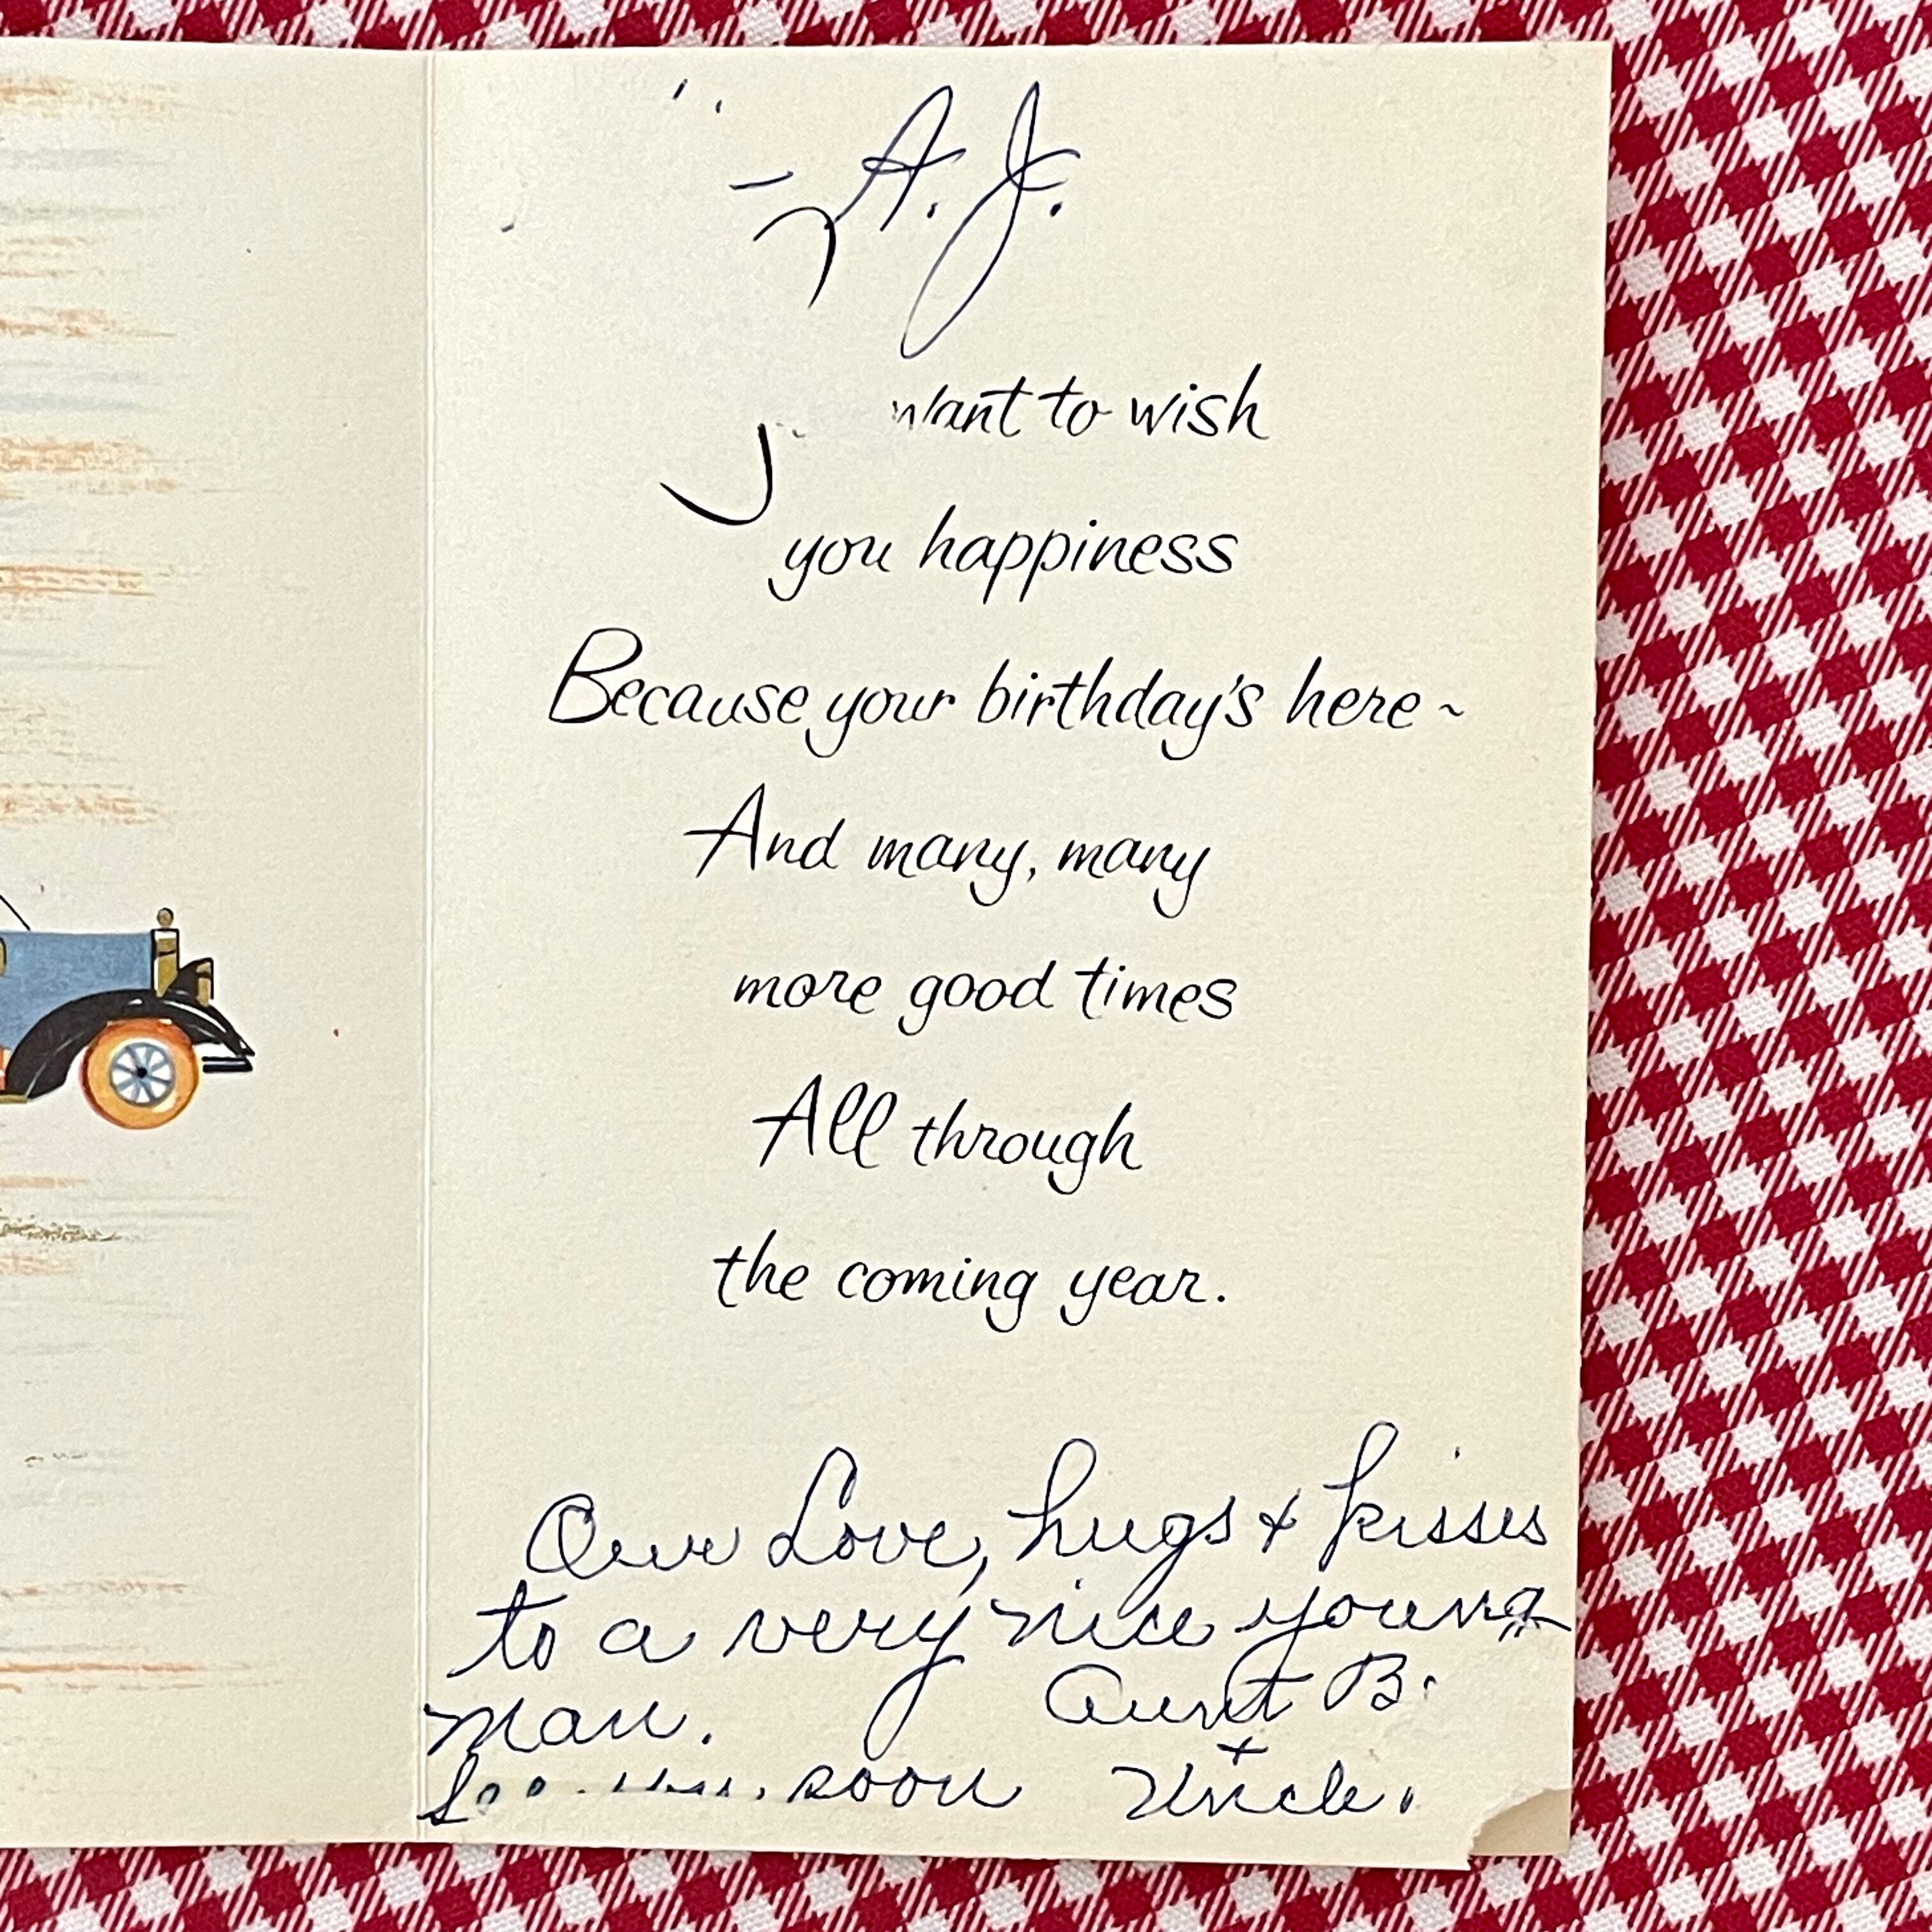 A. J.
want to wish
you happiness
Because your birthday's here ~
And many, many
more good times
All through
the coming year.
Our Love, hugs + kisses
to a very nice young
man. Aunt B.
+
soon Uncle.